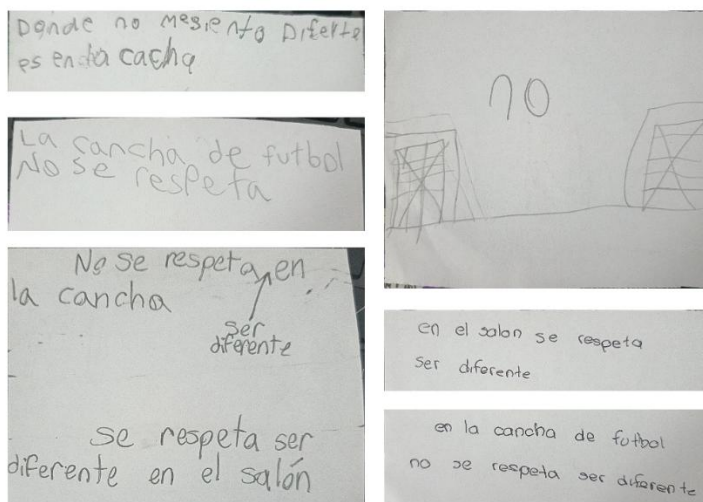 Donde no mesiento Diferte
es en la cacha
La cancha de futbol
No se respeta
No se respeta en
la cancha
ser
diferente
se respeta ser
diferente en el salón
no
en el salon se respeta
ser diferente
en la cancha de futbol
no se respeta ser diferente